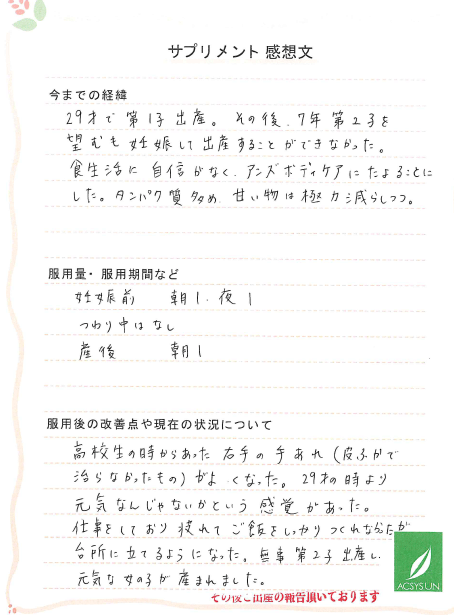 サプリメント 感想文
今までの経緯
29才で第1子出産。その後、7年第2子を
望むも妊娠して出産することができなかった。
食生活に自信がなく、アンズボディケアにたよることに
した。タンパク質多め、甘い物は極力減らしつつ。
服用量・服用期間など
妊娠前 朝1、夜1
つわり中はなし
産後 朝1
服用後の改善点や現在の状況について
高校生の時からあった右手の手あれ(皮ふかで
治らなかったもの)がよくなった。29才の時より
元気なんじゃないかという感覚があった。
仕事をしており疲れてご飯をしっかりつくれなかったが
台所に立てるようになった。無事第2子出産し、
元気な女の子が産まれました。
その後ご出産の報告頂いております
ACSYSUN